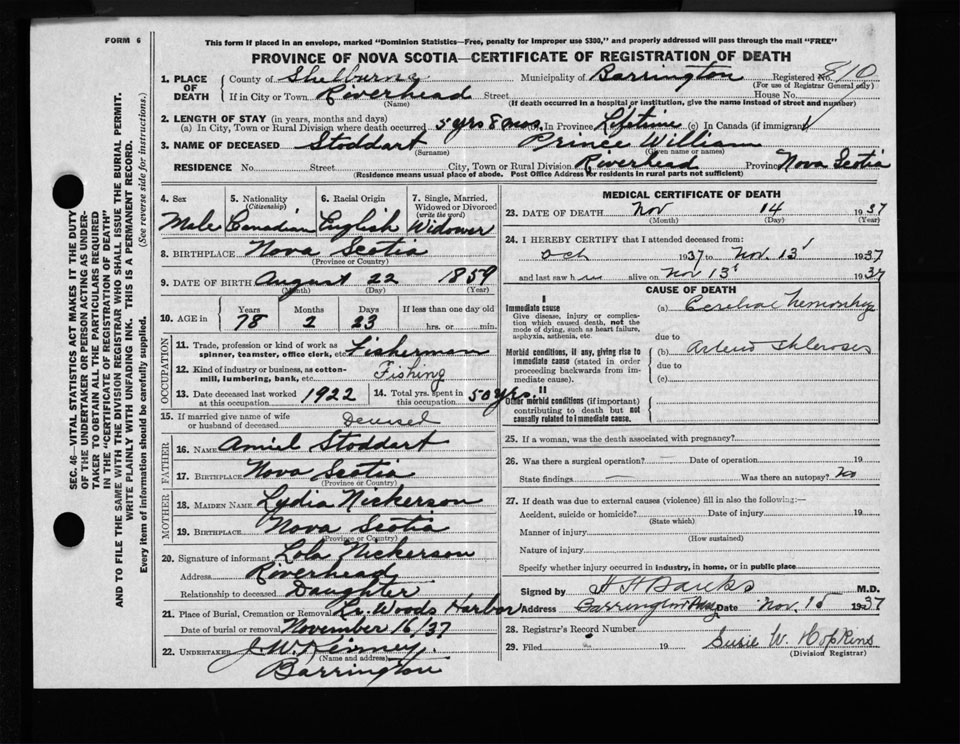 FORM 6
This form if placed in an envelope, marked "Dominion Statistics—Free, penalty for improper use $300," and properly addressed will pass through the mail "FREE"
PROVINCE OF NOVA SCOTIA—CERTIFICATE OF REGISTRATION OF DEATH
1. PLACE OF DEATH
County of Shelburne Municipality of Barrington Registered No. 810
(For use of Registrar General only)
If in City or Town Riverhead Street House No.
(Name) (If death occurred in a hospital or institution, give the name instead of street and number)
2. LENGTH OF STAY (in years, months and days)
(a) In City, Town or Rural Division where death occurred 5 yrs 8 mos. In Province Lifetime (c) In Canada (if immigrant)
3. NAME OF DECEASED Stoddart Prince William
(Surname) (Given name or names)
RESIDENCE No. Street City, Town or Rural Division Riverhead Province Nova Scotia
(Residence means usual place of abode. Post Office Address for residents in rural parts not sufficient)
4. Sex
Male
5. Nationality
(Citizenship)
Canadian
6. Racial Origin
English
7. Single, Married, Widowed or Divorced
(write the word)
Widower
8. BIRTHPLACE Nova Scotia
(Province or Country)
9. DATE OF BIRTH August 22 1859
(Month) (Day) (Year)
10. AGE in
Years Months Days If less than one day old
78 2 23 hrs. or min.
OCCUPATION
11. Trade, profession or kind of work as
spinner, teamster, office clerk, etc. Fisherman
12. Kind of industry or business, as cotton-
mill, lumbering, bank, etc. Fishing
13. Date deceased last worked
at this occupation 1922
14. Total yrs. spent in
this occupation 50 yrs.
15. If married give name of wife
or husband of deceased
FATHER
16. NAME Amiel Stoddart
17. BIRTHPLACE Nova Scotia
(Province or Country)
MOTHER
18. MAIDEN NAME Lydia Nickerson
19. BIRTHPLACE Nova Scotia
(Province or Country)
20. Signature of informant Lola Nickerson
Address Riverhead
Relationship to deceased Daughter
21. Place of Burial, Cremation or Removal Lr. Woods Harbor
Date of burial or removal November 16/37
22. UNDERTAKER J. W. Kenney.
(Name and address)
Barrington
MEDICAL CERTIFICATE OF DEATH
23. DATE OF DEATH Nov 14 1937
(Month) (Day) (Year)
24. I HEREBY CERTIFY that I attended deceased from:
Oct 1937 to Nov. 13 1937
and last saw him alive on Nov 13 1937
CAUSE OF DEATH
I
Immediate cause
Give disease, injury or complication which caused death, not the mode of dying, such as heart failure, asphyxia, asthenia, etc.
(a)
due to
Morbid conditions, if any, giving rise to immediate cause (stated in order proceeding backwards from immediate cause).
(b)
due to
(c)
II
Other morbid conditions (if important) contributing to death but not causally related to immediate cause.
25. If a woman, was the death associated with pregnancy?
26. Was there a surgical operation? — Date of operation 19
State findings — Was there an autopsy? no
27. If death was due to external causes (violence) fill in also the following:—
Accident, suicide or homicide? Date of injury 19
(State which)
Manner of injury
(How sustained)
Nature of injury
Specify whether injury occurred in industry, in home, or in public place
Signed by M.D.
Address Barrington Date Nov. 15 1937
28. Registrar's Record Number
29. Filed 19 Susie W. Hopkins
(Division Registrar)
SEC. 46—VITAL STATISTICS ACT MAKES IT THE DUTY
OF THE UNDERTAKER OR PERSON ACTING AS UNDER-
TAKER TO OBTAIN ALL THE PARTICULARS REQUIRED
IN THE "CERTIFICATE OF REGISTRATION OF DEATH"
AND TO FILE THE SAME WITH THE DIVISION REGISTRAR WHO SHALL ISSUE THE BURIAL PERMIT.
WRITE PLAINLY WITH UNFADING INK. THIS IS A PERMANENT RECORD.
Every item of information should be carefully supplied. (See reverse side for instructions.)